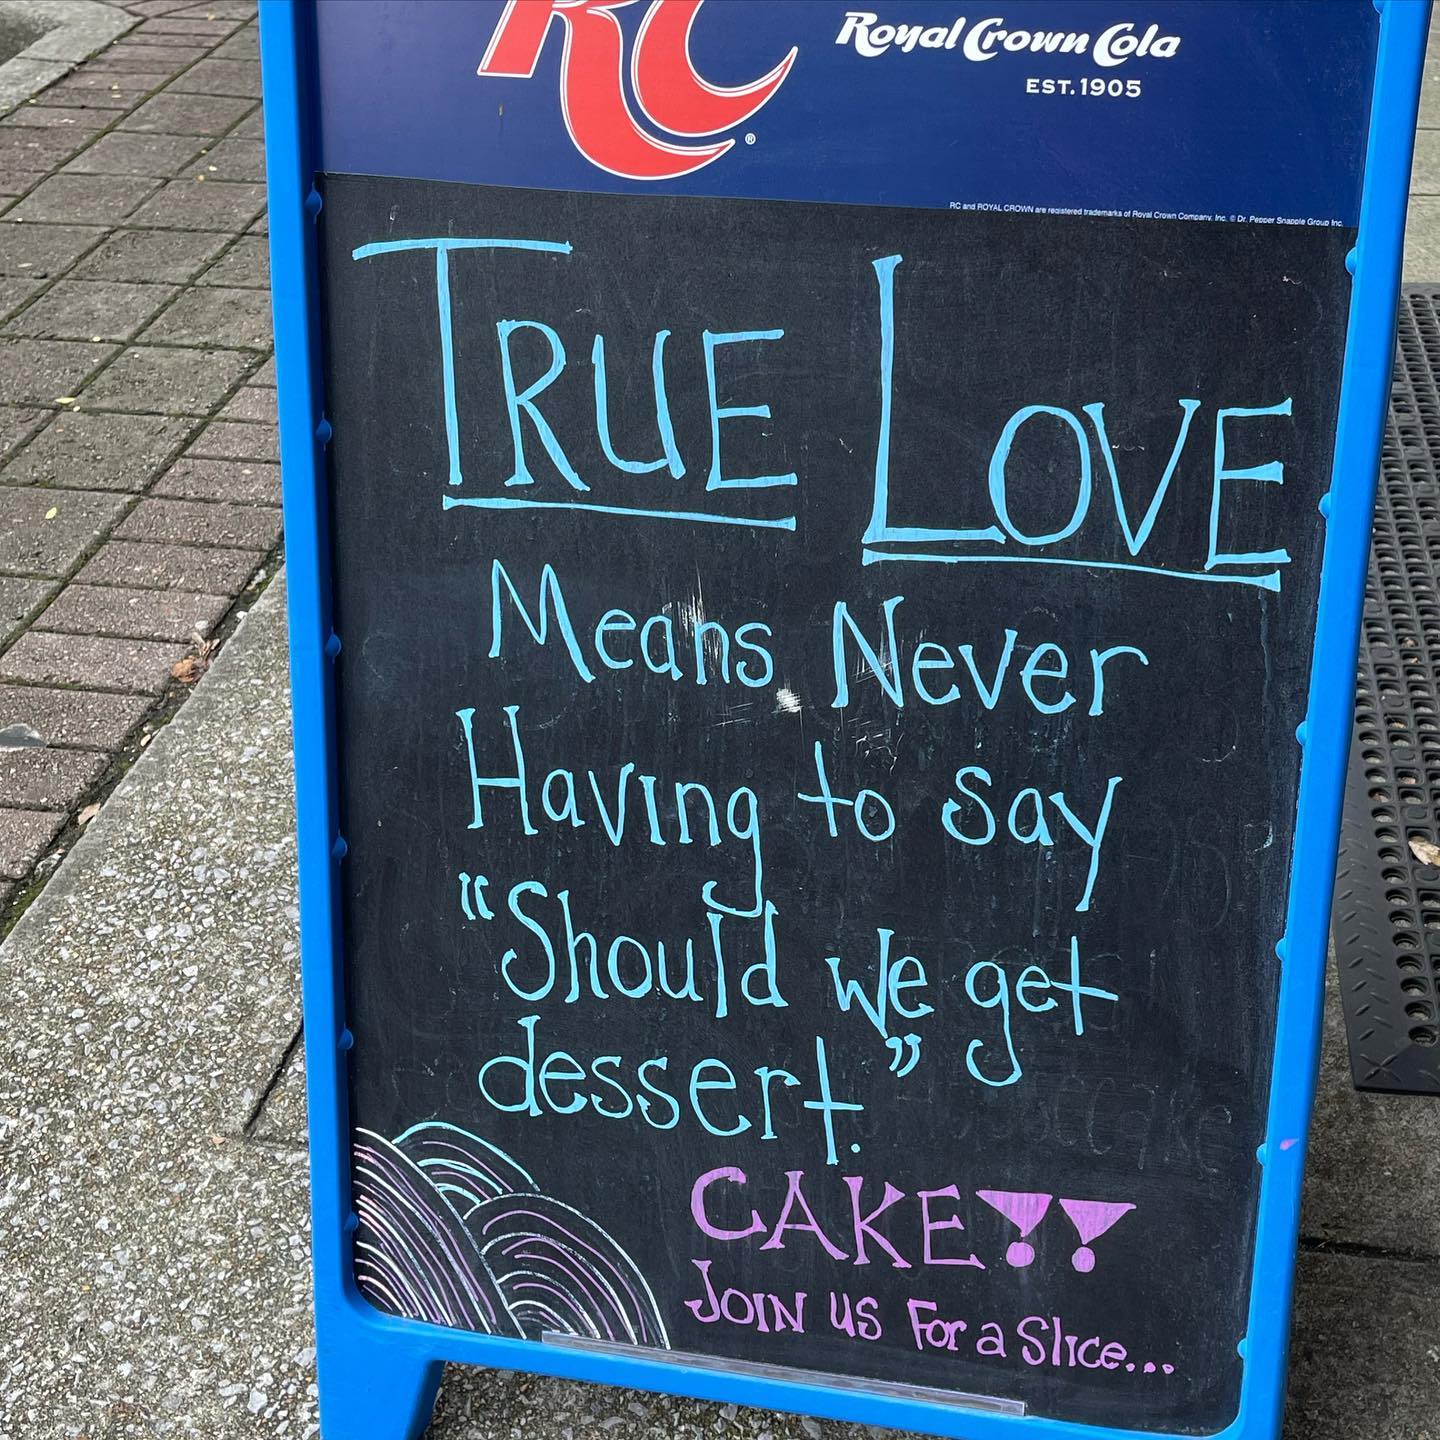 RC®
Royal Crown Cola
EST. 1905
RC and ROYAL CROWN are registered trademarks of Royal Crown Company, Inc. © Dr. Pepper Snapple Group Inc.
TRUE LOVE
Means Never
Having to say
“Should we get
dessert.”
CAKE!!
JOIN us For a Slice...